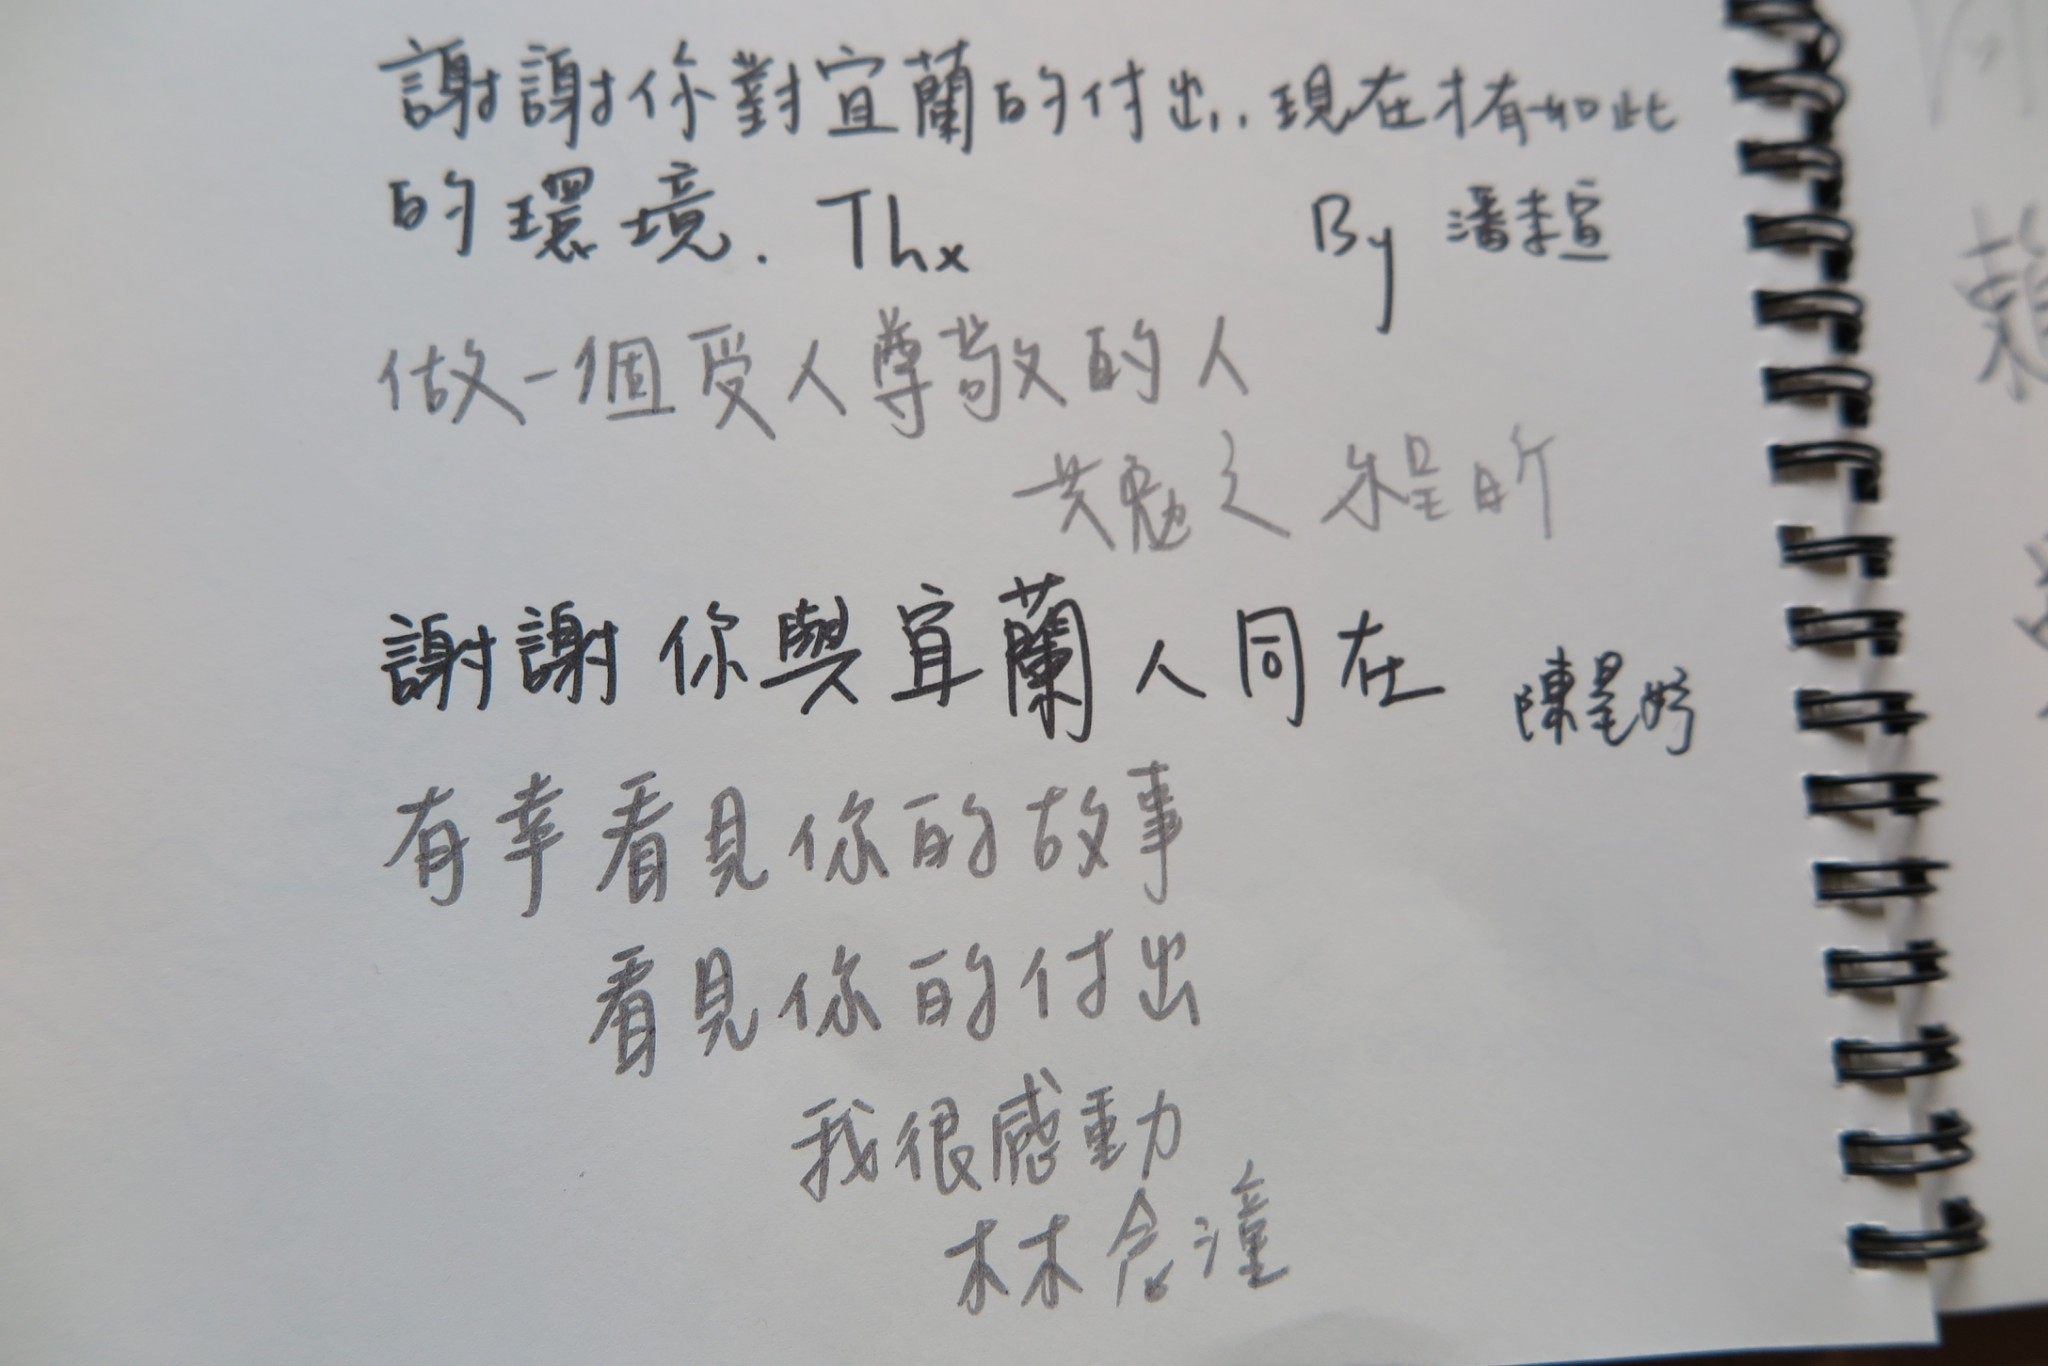 謝謝你對宜蘭的付出,.現在才有如此
的環境. Thx By 潘李宣
做一個受人尊敬的人
共勉之 程昕
謝謝你與宜蘭人同在 陳星妤
有幸看見你的故事
看見你的付出
我很感動
林念潼
賴